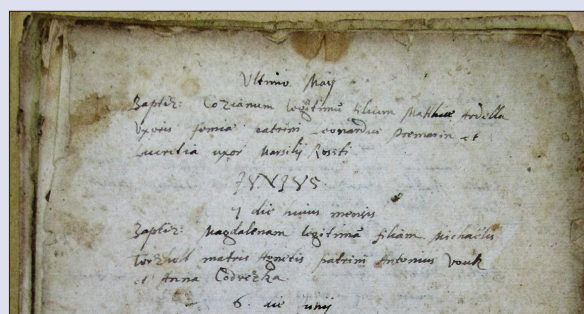 Ultimo May
Baptiz: Cozianum legitimū filium Matthiae
Uxoris patrini Leonardus Premarin et
Lucretia uxor Marsilij Roseti
JUNIUS
1 die huius mensis
Baptiz: Magdalenam legitimā filiam Michaelis
matris Agnetis patrini Antonius Vouk
et Anna Codrezka
6. die